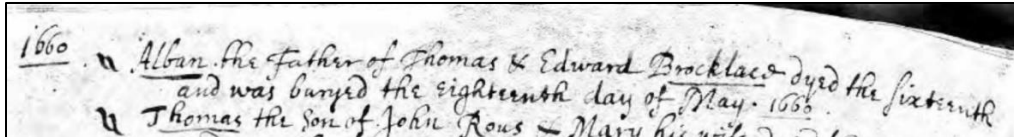 1660
Alban the Father of Thomas & Edward Brocklace dyed the sixteenth
and was buryed the eighteenth day of May. 1660
Thomas the Son of John Rous & Mary his wife